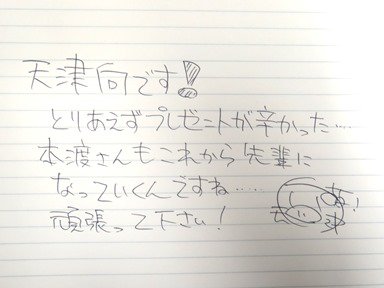 天津向です!
とりあえずプレゼントが辛かった……
本渡さんもこれから先輩に
なっていくんですね……
頑張って下さい!